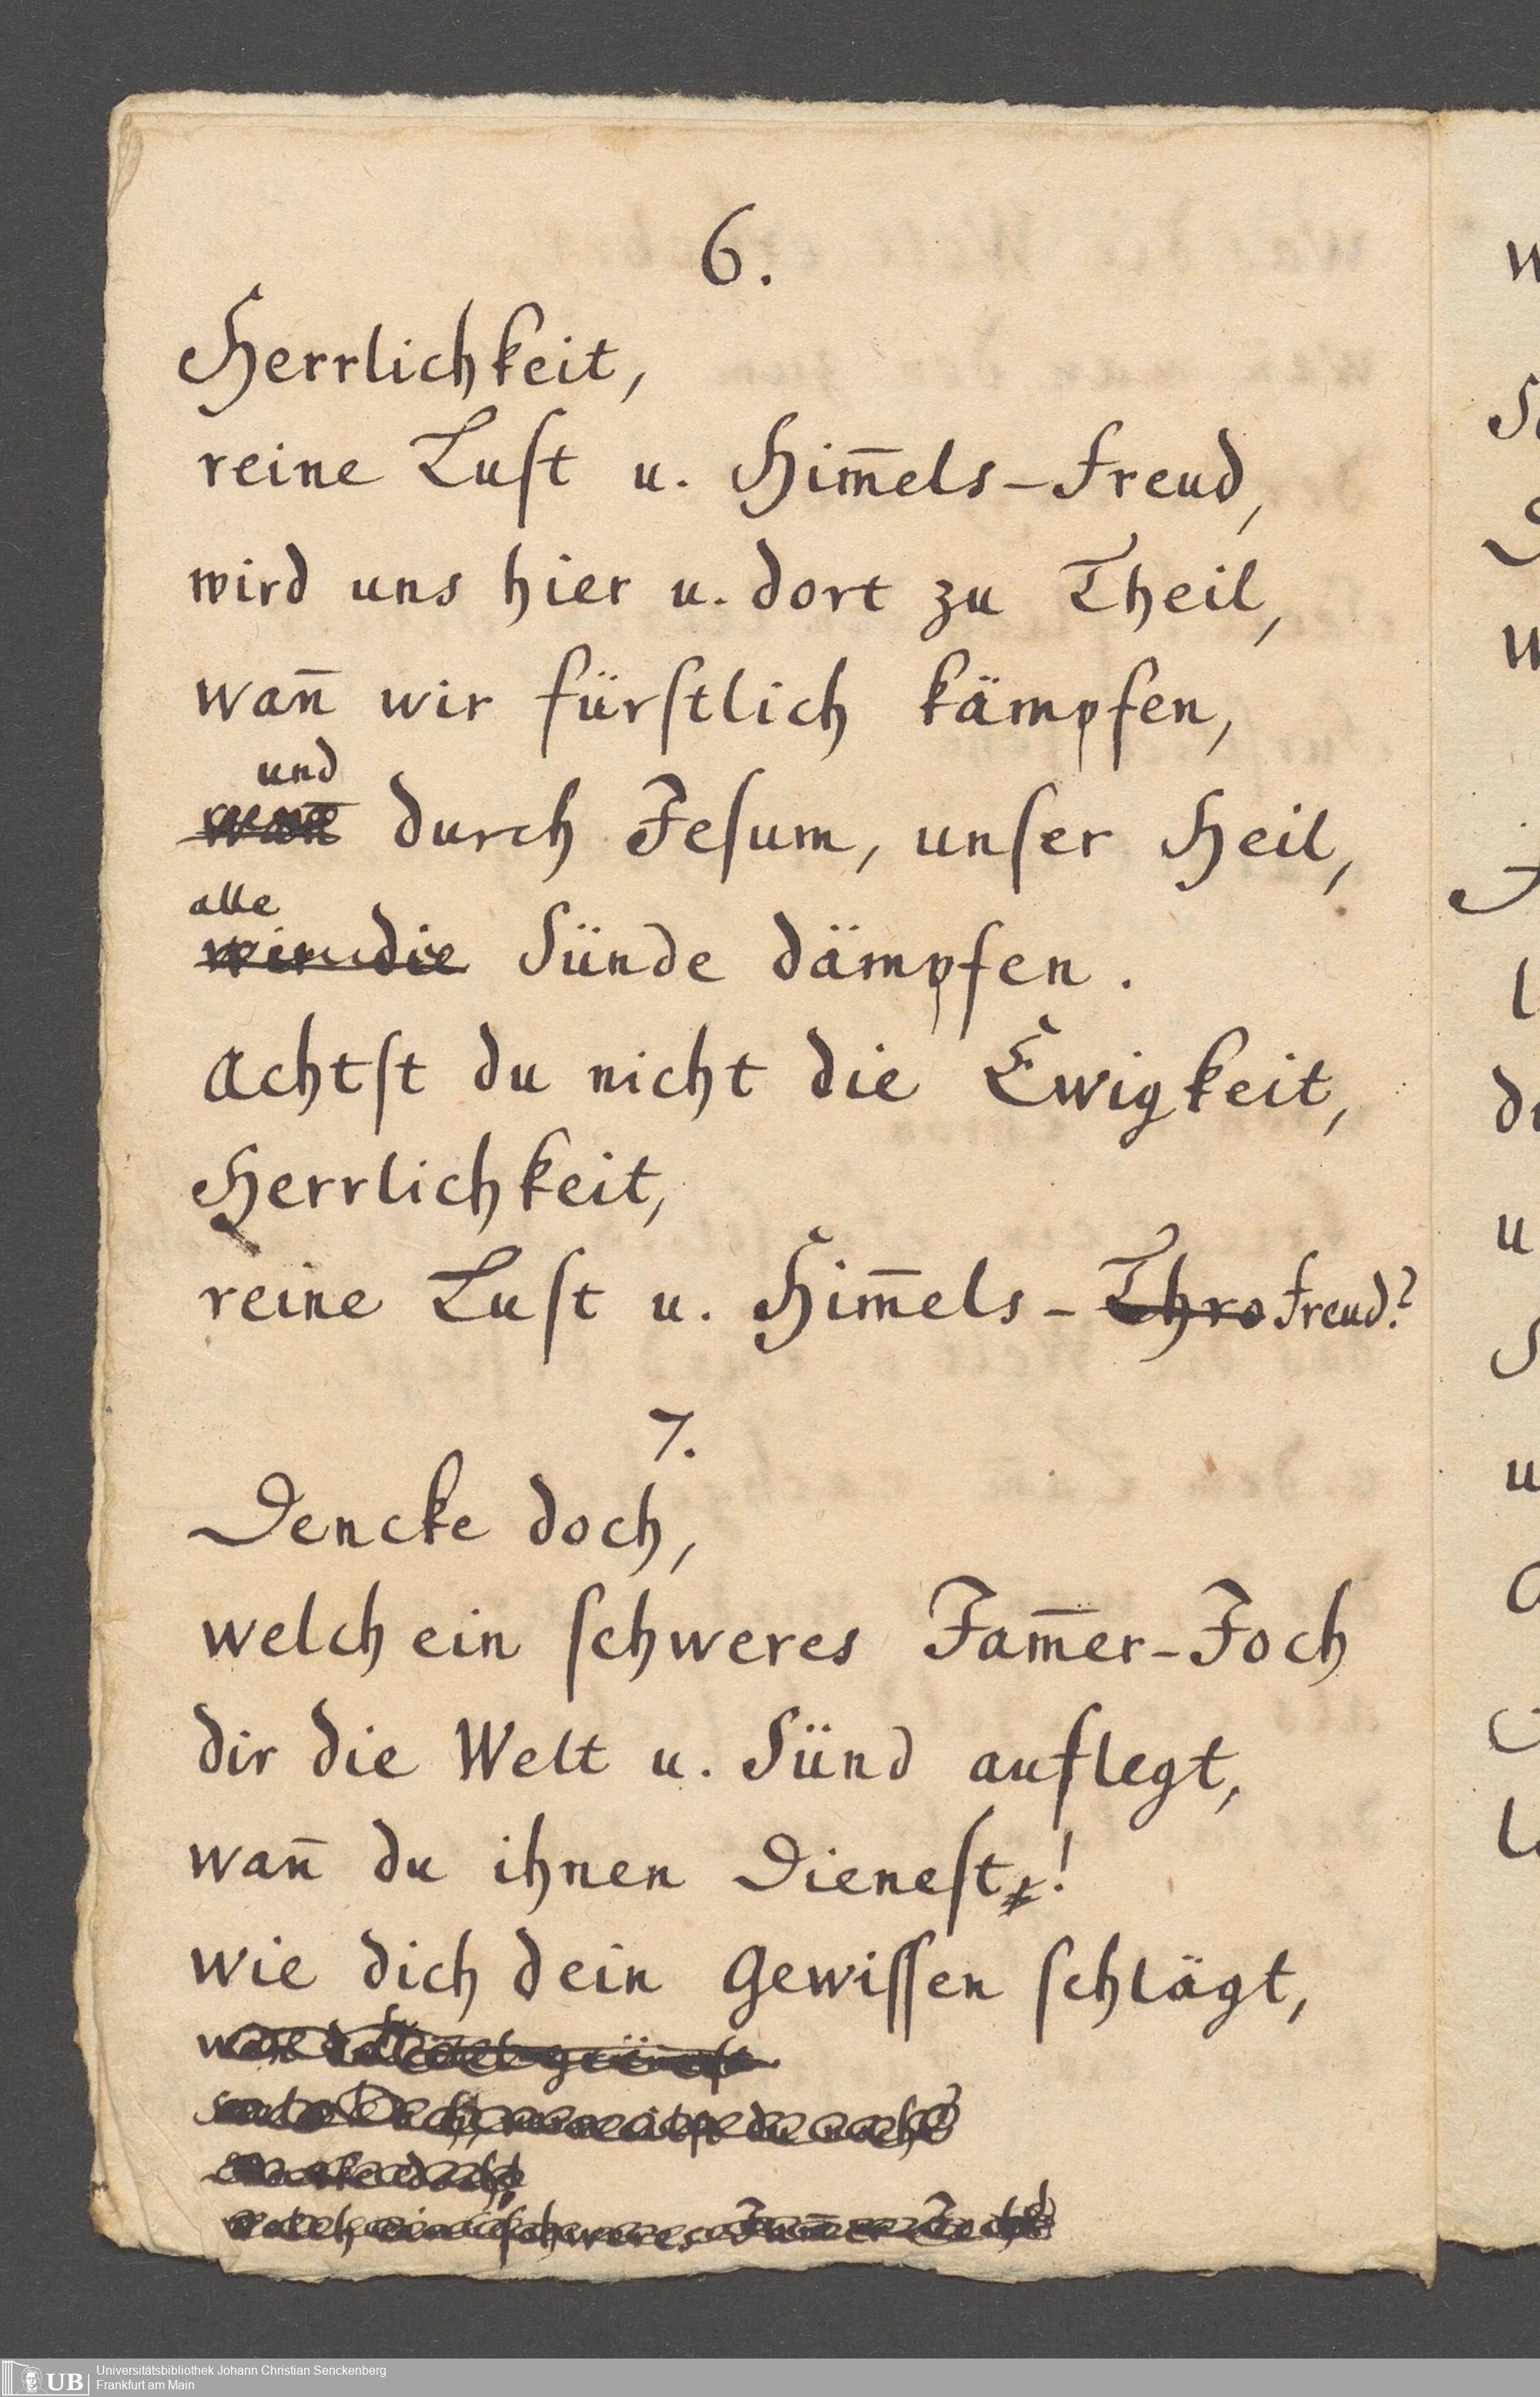 6.
Herrlichkeit,
reine Luſt u. Him̅els-Freud,
wird uns hier u. dort zu Theil,
wan̅ wir fürſtlich kämpfen,
und
wan̅ durch Jeſum, unſer Heil,
alle
wir die Sünde dämpfen.
Achtſt du nicht die Ewigkeit,
Herrlichkeit,
reine Luſt u. Him̅els-Thro Freud?
7.
Dencke doch,
welch ein ſchweres Jam̅er-Joch
dir die Welt u. Sünd auflegt,
wan̅ du ihnen Dieneſt!
wie dich dein Gewiſſen ſchlägt,
doch
welch ein ſchweres Jam̅er-Joch
Universitätsbibliothek Johann Christian Senckenberg
Frankfurt am Main
UB